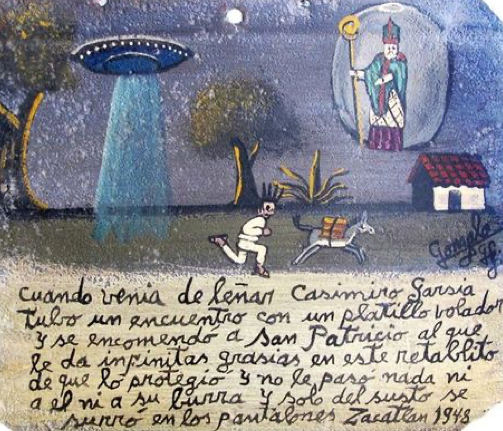 Gonzalo
cuando venia de leñar Casimiro Garsia
tubo un encuentro con un platillo volador
y se encomendo a San Patricio al que
le da infinitas grasias en este retablito
de que lo protegió y no le pasó nada ni
a el ni a su burra y solo del susto se
surró en los pantalones Zacatlan 1948